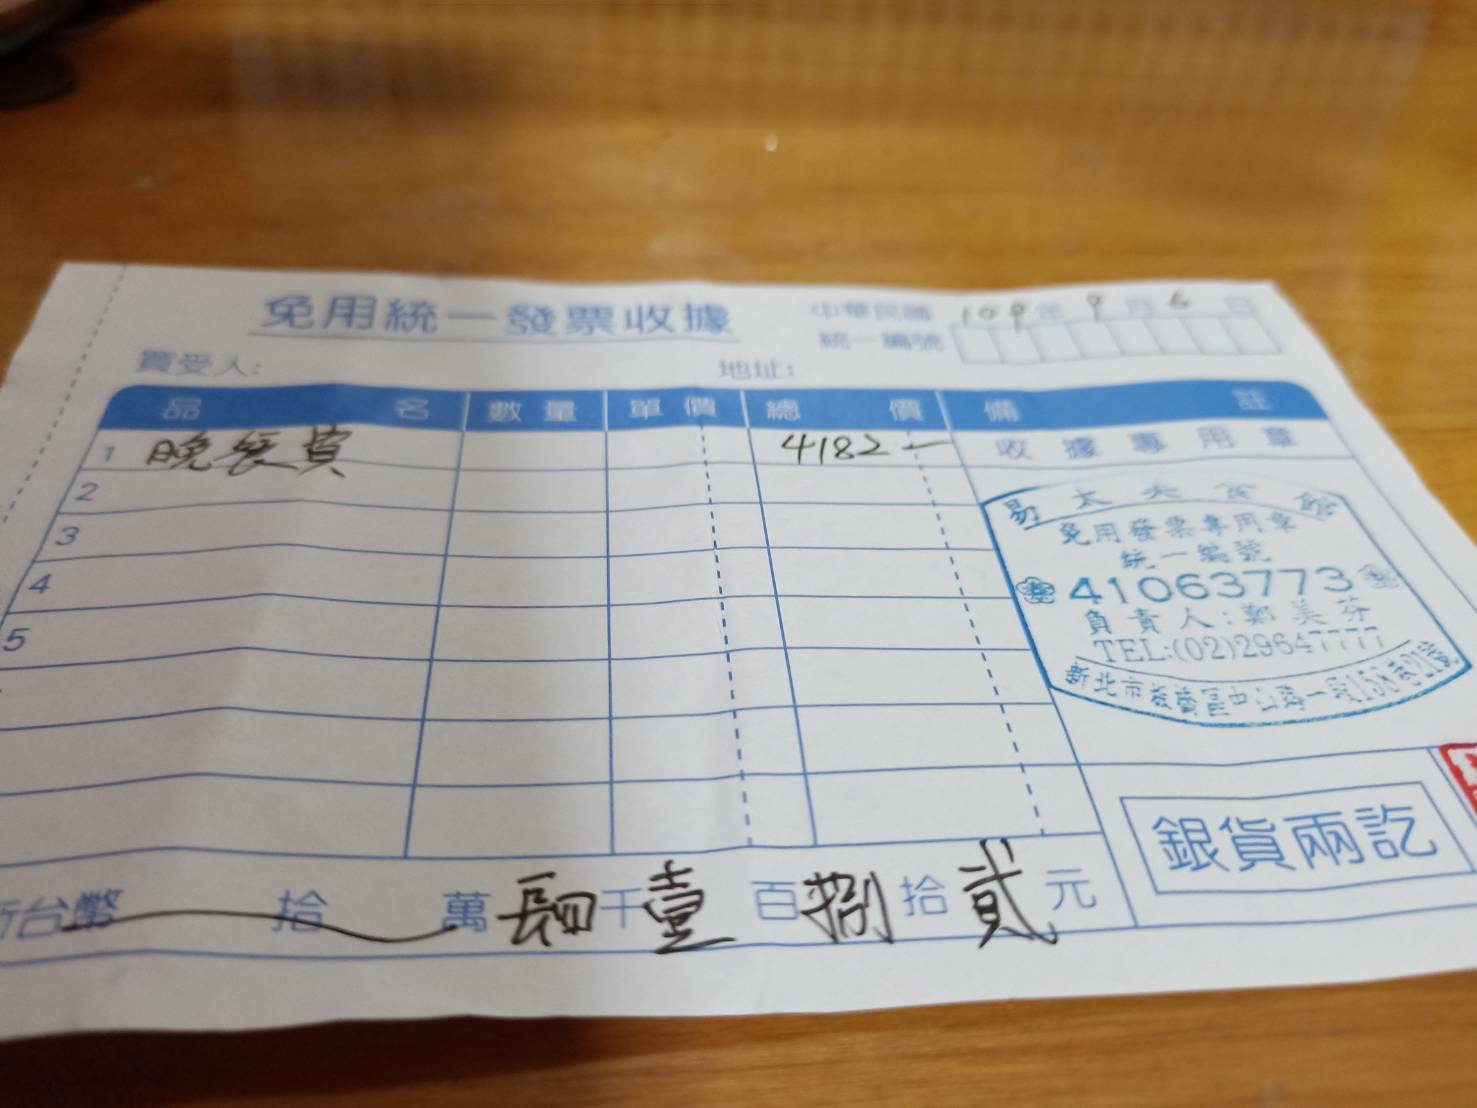 免用統一發票收據
中華民國 109 年 9 月 6 日
統一編號
買受人: 地址:
品名 數量 單價 總價 備註
1 晚餐費 4182- 收據專用章
2
3
4
5
易太太食館
免用發票專用章
統一編號
41063773
負責人:鄭美芬
TEL:(02)29647777
新北市板橋區中山路一段158巷21號
銀貨兩訖
新台幣 拾 萬 肆 千 壹 百 捌 拾 貳 元